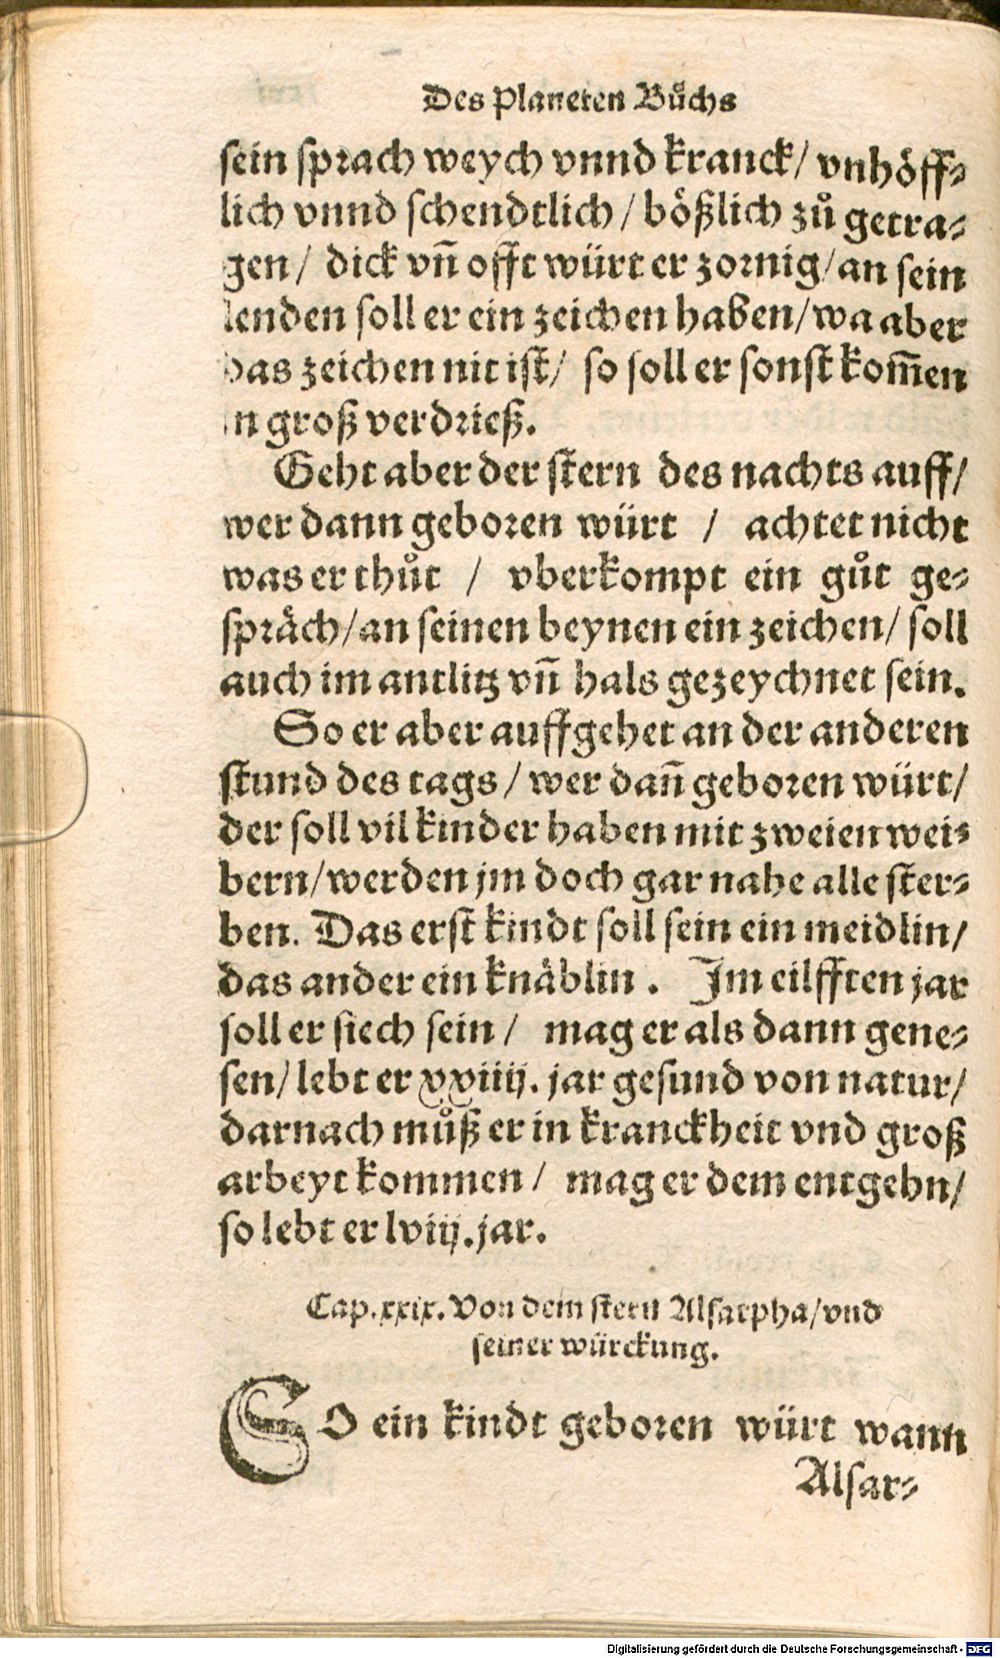 Des Planeten Bůchs
sein sprach weych vnnd kranck/ vnhöff⸗
lich vnnd schendtlich / bößlich zů getra⸗
gen/ dick vñ offt würt er zornig/an sein
lenden soll er ein zeichen haben/wa aber
das zeichen nit ist/ so soll er sonst kom̃en
in groß verdrieß.
Geht aber der stern des nachts auff/
wer dann geboren würt / achtet nicht
was er thůt / vberkompt ein gůt ge⸗
spräch/an seinen beynen ein zeichen/ soll
auch im antlitz vñ hals gezeychnet sein.
So er aber auffgehet an der anderen
stund des tags / wer dañ geboren würt/
der soll vil kinder haben mit zweien wei⸗
bern/werden jm doch gar nahe alle ster⸗
ben. Das erst kindt soll sein ein meidlin/
das ander ein knäblin . Im eilfften jar
soll er siech sein / mag er als dann gene⸗
sen/ lebt er xxiiij. jar gesund von natur/
darnach můß er in kranckheit vnd groß
arbeyt kommen / mag er dem entgehn/
so lebt er lviij. jar.
Cap. xxix. Von dem stern Alsarpha/vnd
seiner würckung.
SO ein kindt geboren würt wann
Alsar⸗
Digitalisierung gefördert durch die Deutsche Forschungsgemeinschaft - DFG